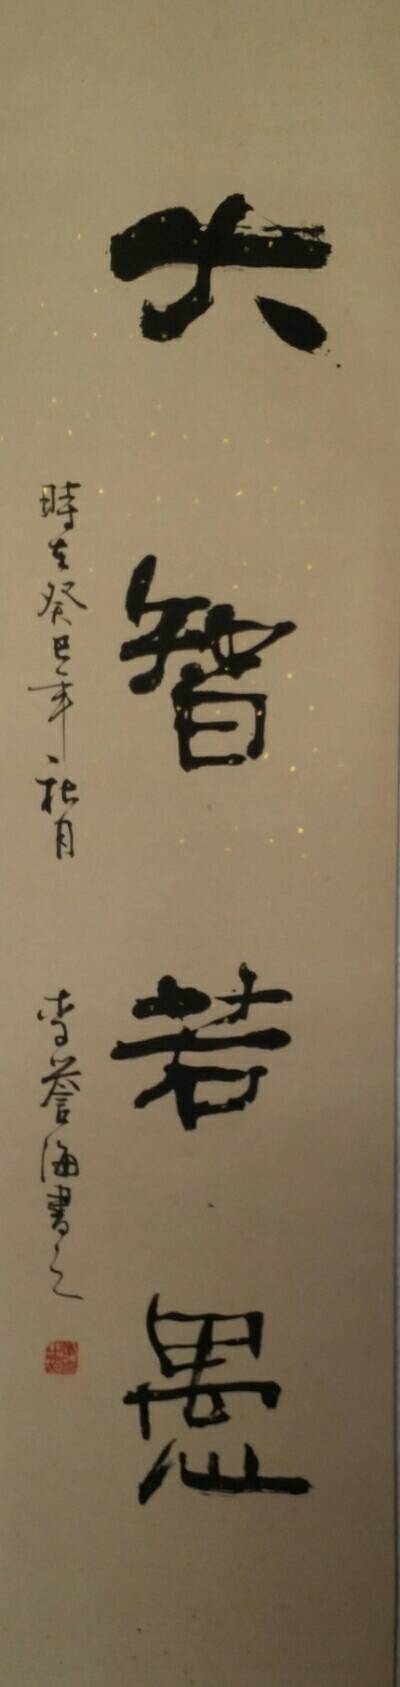 大智若愚
時在癸巳年秋月
李蒼海書之